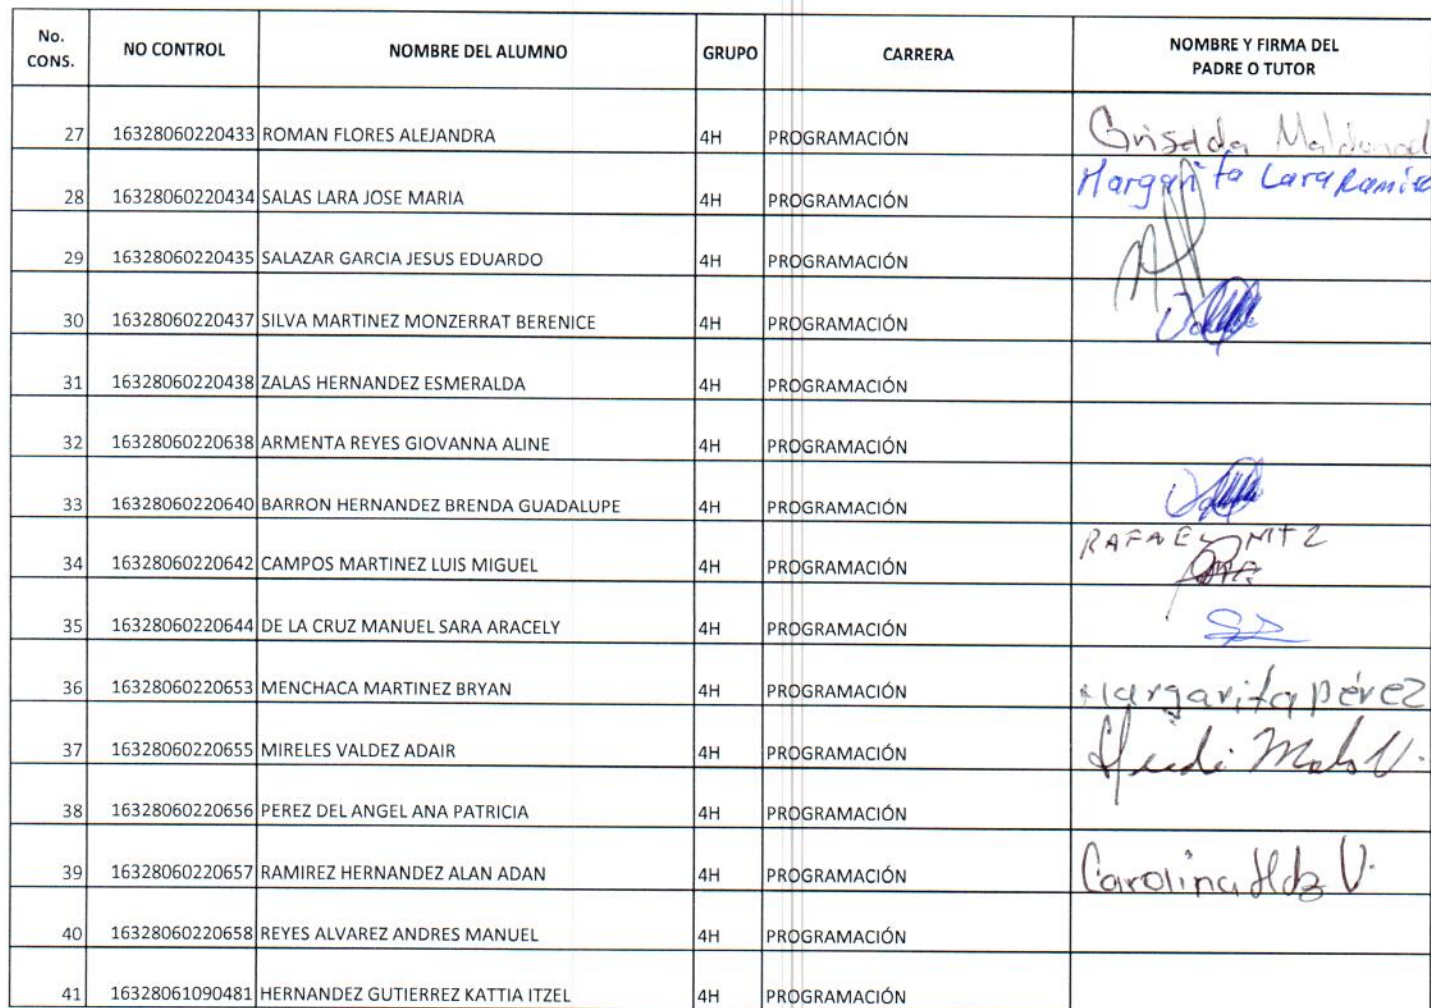 No. CONS. NO CONTROL NOMBRE DEL ALUMNO GRUPO CARRERA NOMBRE Y FIRMA DEL PADRE O TUTOR
27 16328060220433 ROMAN FLORES ALEJANDRA 4H PROGRAMACIÓN Griselda Maldonad
28 16328060220434 SALAS LARA JOSE MARIA 4H PROGRAMACIÓN Margarita Lara Ramire
29 16328060220435 SALAZAR GARCIA JESUS EDUARDO 4H PROGRAMACIÓN
30 16328060220437 SILVA MARTINEZ MONZERRAT BERENICE 4H PROGRAMACIÓN
31 16328060220438 ZALAS HERNANDEZ ESMERALDA 4H PROGRAMACIÓN
32 16328060220638 ARMENTA REYES GIOVANNA ALINE 4H PROGRAMACIÓN
33 16328060220640 BARRON HERNANDEZ BRENDA GUADALUPE 4H PROGRAMACIÓN
34 16328060220642 CAMPOS MARTINEZ LUIS MIGUEL 4H PROGRAMACIÓN RAFAEL MTZ
35 16328060220644 DE LA CRUZ MANUEL SARA ARACELY 4H PROGRAMACIÓN
36 16328060220653 MENCHACA MARTINEZ BRYAN 4H PROGRAMACIÓN Margarita Pérez
37 16328060220655 MIRELES VALDEZ ADAIR 4H PROGRAMACIÓN V.
38 16328060220656 PEREZ DEL ANGEL ANA PATRICIA 4H PROGRAMACIÓN
39 16328060220657 RAMIREZ HERNANDEZ ALAN ADAN 4H PROGRAMACIÓN Carolina Hdz V.
40 16328060220658 REYES ALVAREZ ANDRES MANUEL 4H PROGRAMACIÓN
41 16328061090481 HERNANDEZ GUTIERREZ KATTIA ITZEL 4H PROGRAMACIÓN